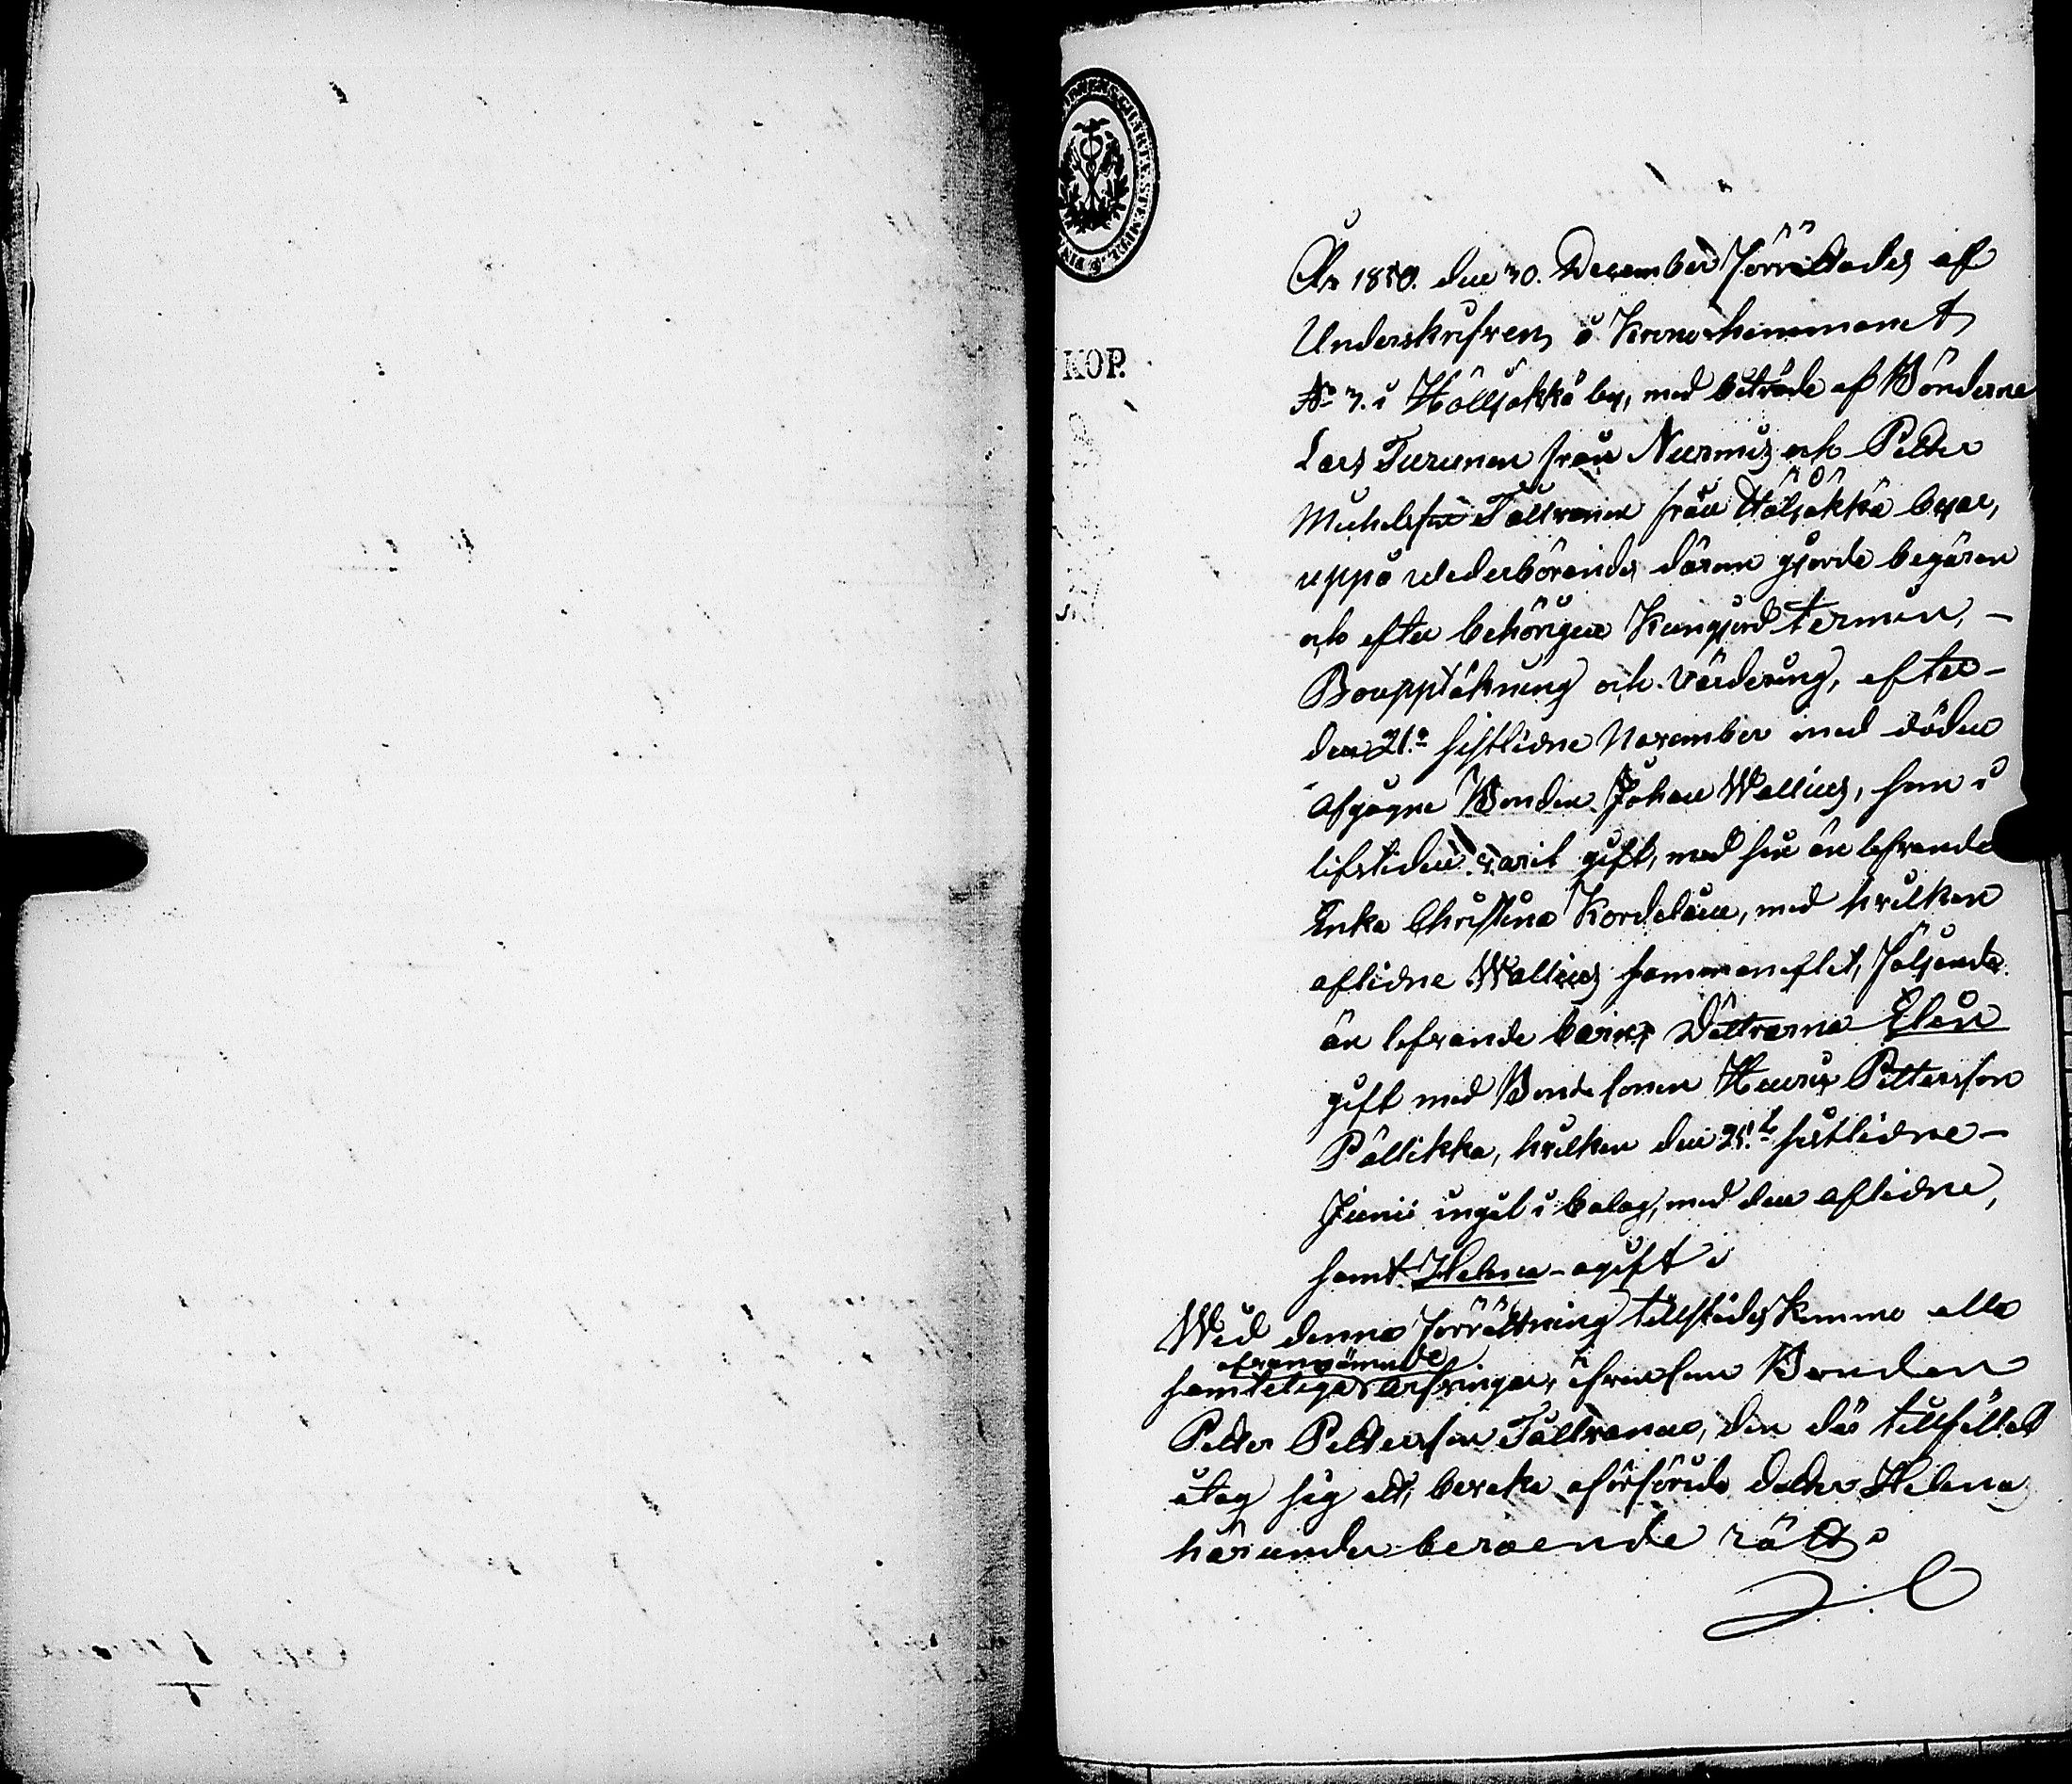 KOP.
År 1850. den 30. December förrättades af
Underskrifven å Kronohemmanet
No 3. i Höljäkkä by, med biträde af Bönderne
Lars Turunen från Nurmis och Petter
Michelsson Tolvanen från Höljäkkä byar,
uppå vederbörandes därom gjorde begäran
och efter behörigen Kungjord termin, –
Bouppteckning och värdering, efter –
den 21.a sistlidne November med döden
afgågne Bonden Johan Wallius, som i
lifstiden varit gift, med sin än lefvande
Enka Christina Kordelain, med hvilken
aflidne Wallius sammanaflet, följande
än lefvande barn; Döttrarna Elin
gift med Bondesonen Henrik Pettersson
Pällikkä, hvilken den 25.t sistlidne –
Junii ingåt i bolag, med den aflidne,
samt Helena – ogift.
Wid denna förrättning tillstädeskommo alla
ofvannämnde
samteliga arfvingar, äfvensom Bonden
Petter Pettersson Tolvanen, den där tillfället
åtog sig att, bevaka oförsörida dotter Helena
härunder beroende rätt.